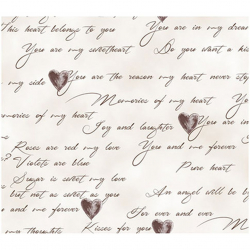 This heart belongs to you You are in my dream
You are my sweetheart Do you want a ki
my side You are the reason my heart never sto
Memories of my heart Y
emories of my heart You are in
Joy and laughter
Roses are red my love You and me f
Violets are blue Pure heart
Sugar is sweet my love
but not as sweet as you An angel will be by
and me forever For ever and ever
my thoughts Kisses for you